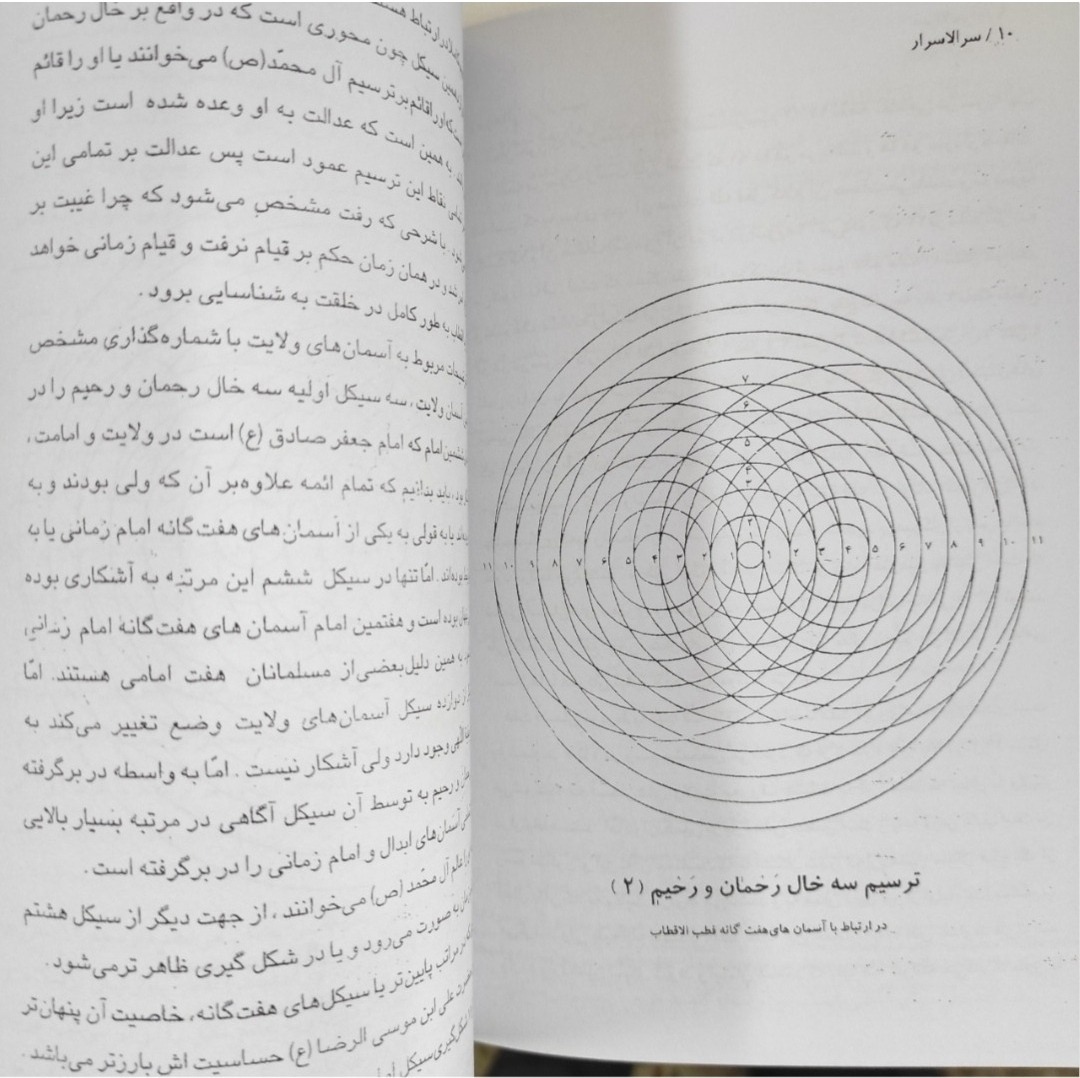 ۱۰ / سرالاسرار
۷
۶
۵
۴
۳
۲
۱
۱۱ ۱۰ ۹ ۸ ۷ ۶ ۵ ۴ ۳ ۲ ۱ ۱ ۲ ۳ ۴ ۵ ۶ ۷ ۸ ۹ ۱۰ ۱۱
ترسیم سه خال رَحمان و رَحیم (۲)
در ارتباط با آسمان های هفت گانه قطب الاقطاب
در ارتباط هستند
همین سیکل چون محوری است که در واقع بر خال رحمان
که او را قائم بر ترسیم آل محمّد(ص) می‌خوانند یا او را قائم
به همین است که عدالت به او وعده شده است زیرا او
نقاط این ترسیم عمود است پس عدالت بر تمامی این
با شرحی که رفت مشخص می‌شود که چرا غیبت بر
شد و در همان زمان حکم بر قیام نرفت و قیام زمانی خواهد
به طور کامل در خلقت به شناسایی برود .
مربوط به آسمان‌های ولایت با شماره‌گذاری مشخص
ولایت ، سه سیکل اولیه سه خال رحمان و رحیم را در
امام که امام جعفر صادق (ع) است در ولایت و امامت ،
باید بدانیم که تمام ائمه علاوه‌بر آن که ولی بودند و به
یا به قولی به یکی از آسمان‌های هفت‌گانه امام زمانی یا به
بوده‌اند . امّا تنها در سیکل ششم این مرتبه به آشکاری بوده
بوده است و هفتمین امام آسمان های هفت‌گانه امام زمانی
به همین دلیل بعضی از مسلمانان هفت امامی هستند. امّا
دوازده سیکل آسمان‌های ولایت وضع تغییر می‌کند به
وجود دارد ولی آشکار نیست . امّا به واسطه در برگرفته
و رحیم به توسط آن سیکل آگاهی در مرتبه بسیار بالایی
آسمان‌های ابدال و امام زمانی را در برگرفته است .
آل محمّد (ص) می‌خوانند ، از جهت دیگر از سیکل هشتم
به صورت می‌رود و یا در شکل گیری ظاهر ترمی‌شود.
مراتب پایین‌تر یا سیکل‌های هفت‌گانه، خاصیت آن پنهان‌تر
علی ابن موسی الرضا (ع) حساسیت اش بارزتر می‌باشد .
شکل‌گیری سیکل